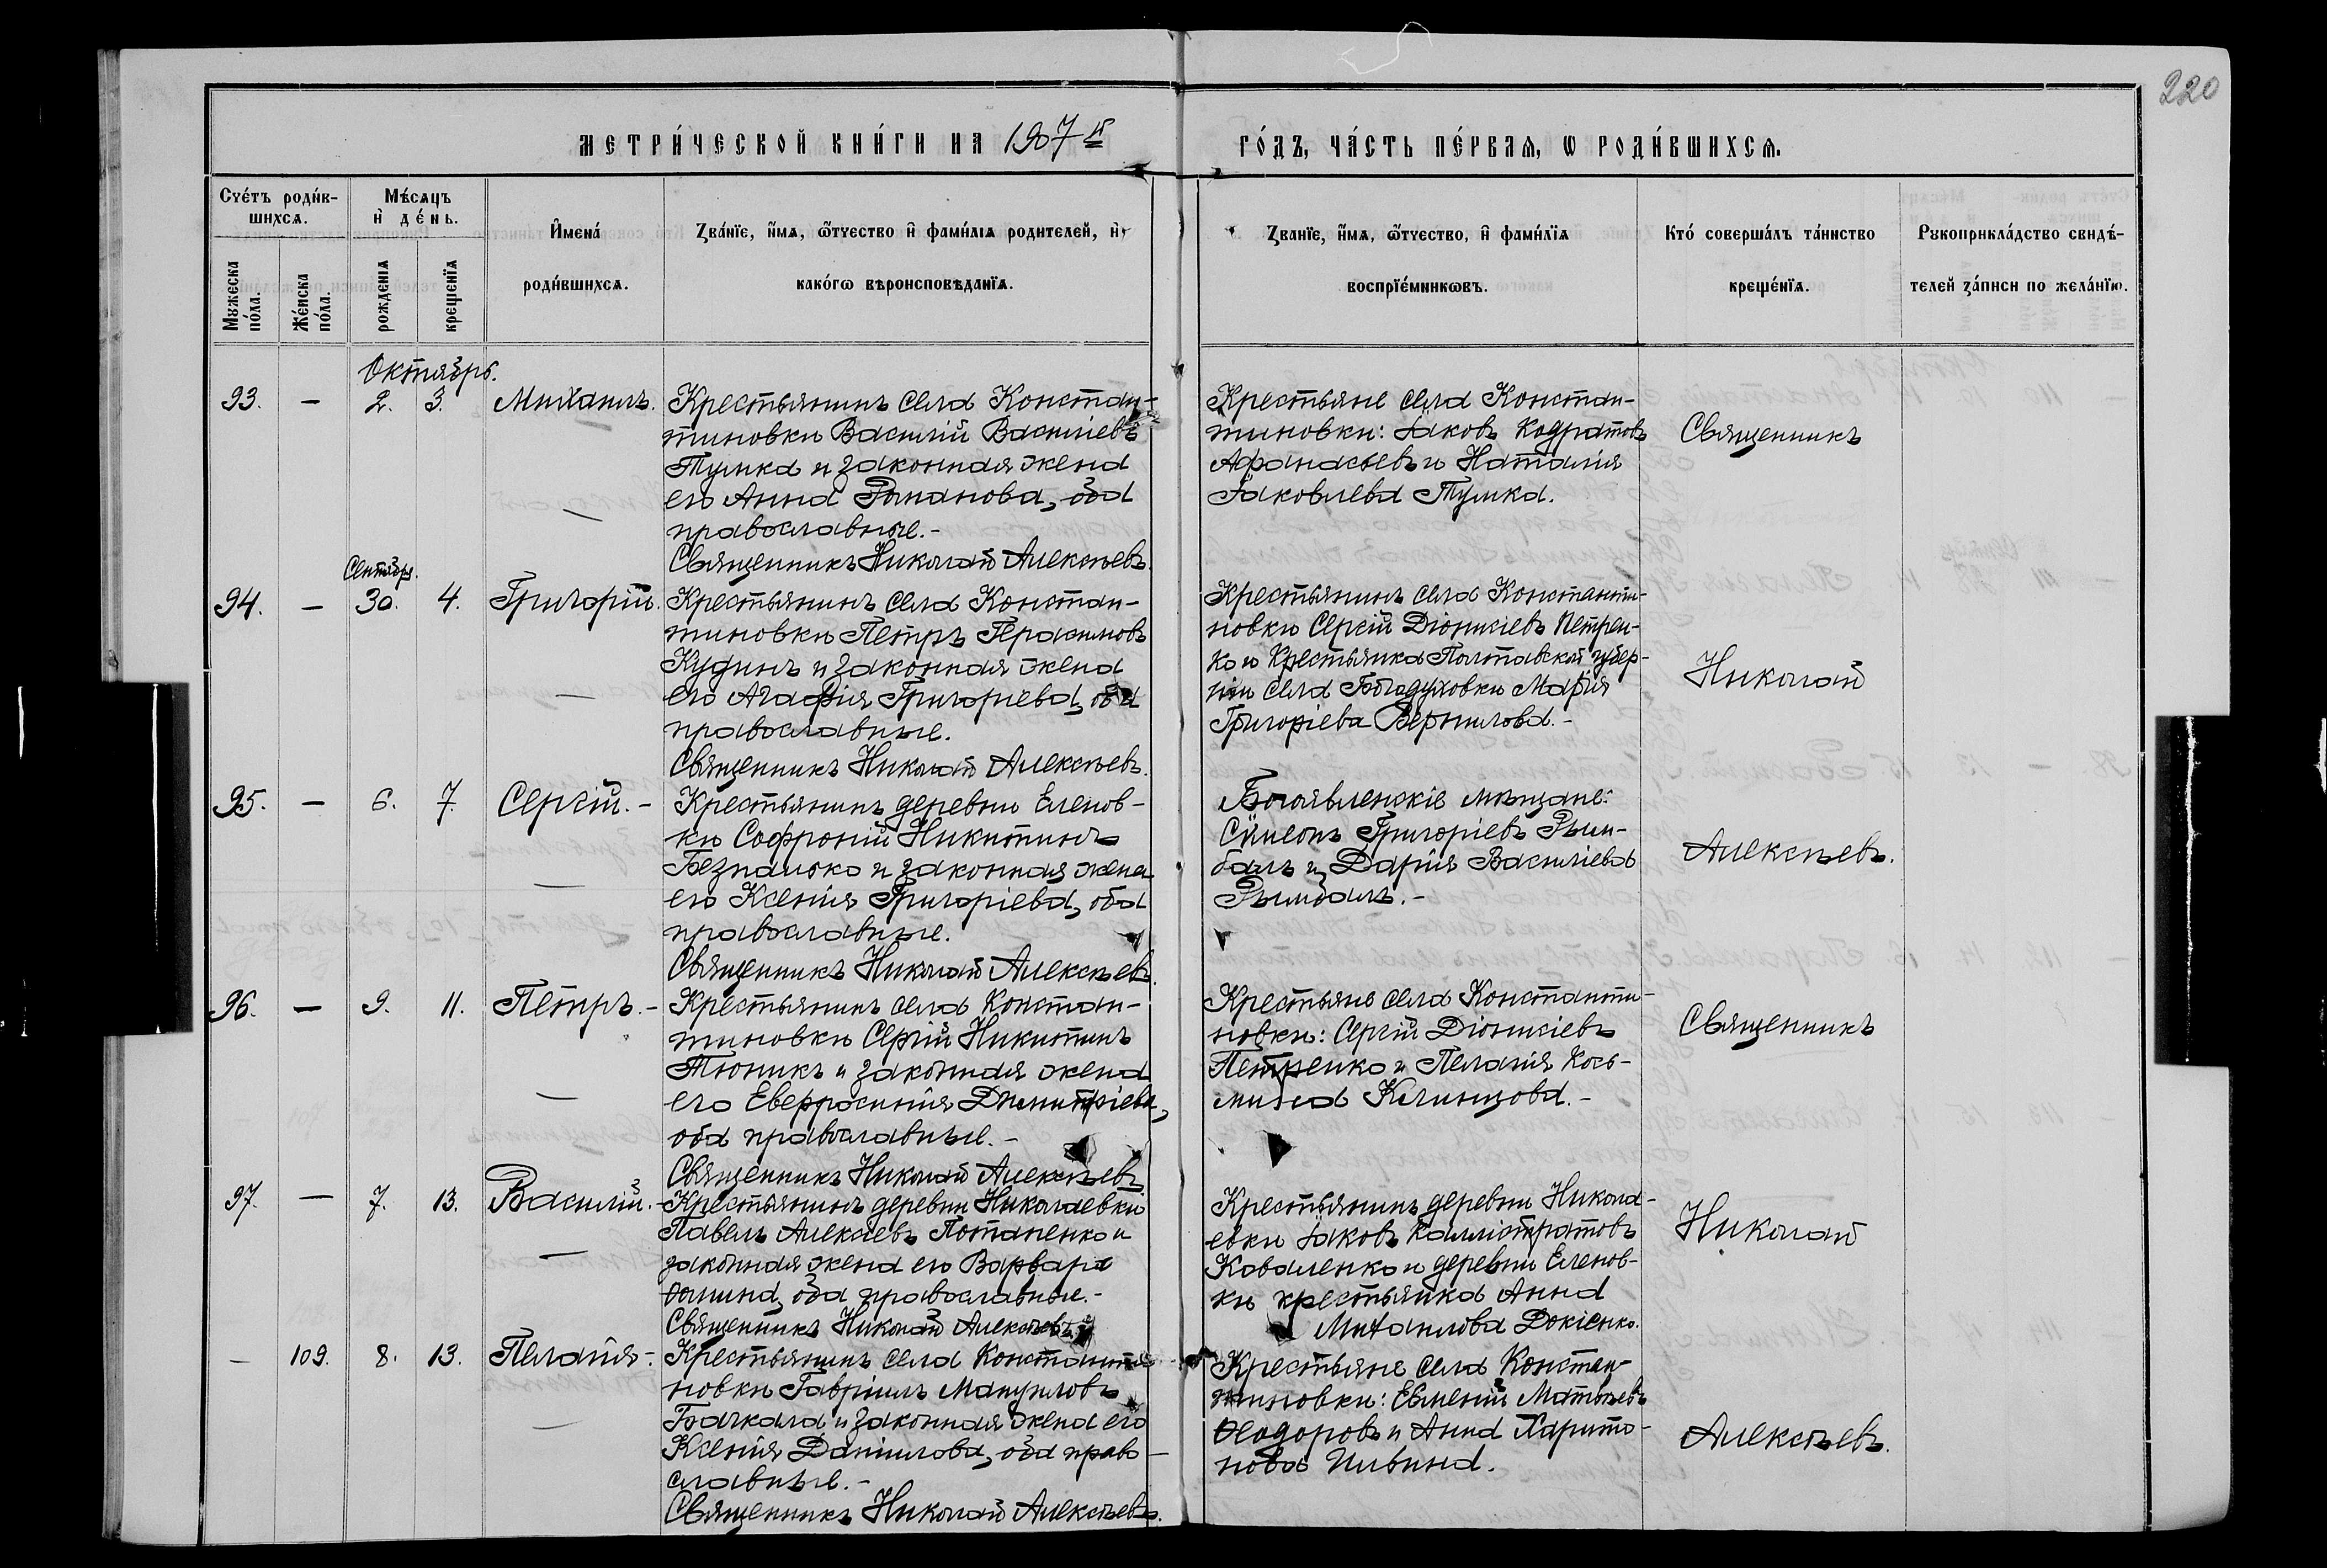 220
МЕТРИ́ЧЕСКОЙ КНИ́ГИ НА 1907 й
ГО́ДЪ, ЧА́СТЬ ПЕ́РВАѦ, Ѡ РОДИ́ВШИХСѦ.
Сче́тъ роди́в-
шихсѧ.
Мѣ́сѧцъ
и҆ де́нь.
Мꙋжеска по́ла.
Же́нска по́ла.
рожденїѧ
крещенїѧ
И҆мена́
роди́вшихсѧ.
Зва́нїе, и҆́мѧ, ѻ҆́тчество и҆ фами́лїѧ родителей, и҆
како́гѡ вѣроисповѣданїѧ.
Званїе, и҆́мѧ, ѻ҆́тчество, и҆ фами́лїѧ
воспрїе́мникѡвъ.
Кто́ соверша́лъ та́инство
креще́нїѧ.
Рꙋкоприкла́дство свидѣ́-
телей за́писи по жела́нїю.
Октябрь.
93. — 2. 3. Михаилъ.
Крестьянинъ села Констан-
тиновки Василій Васильевъ
Тумка и законная жена
его Анна Романова, оба
православные.-
Священникъ Николай Алексѣевъ.
Крестьяне села Констан-
тиновки: Іаковъ Кодратовъ
Афанасьевъ и Наталія
Іаковлева Тумка.
Священникъ
Сентября.
94. — 30. 4. Григорій.
Крестьянинъ села Констан-
тиновки Петръ Герасимовъ
Кудинъ и законная жена
его Агафія Григоріева, оба
православные.
Священникъ Николай Алексѣевъ.
Крестьянинъ села Константи-
новки Сергій Діонисіевъ Петрен-
ко и Крестьянка Полтавской губер-
ніи села Богодуховки Марія
Григоріева Вернилова.-
Николай
95. — 6. 7. Сергій.-
Крестьянинъ деревни Еленов-
ки Софроній Никитинъ
Безпалько и законная жена
его Ксенія Григоріева, оба
православные.
Священникъ Николай Алексѣевъ.
Богоявленскіе мѣщане:
Сѵмеонъ Григоріевъ Рым-
балъ и Дарія Васильева
Рымбалъ.-
Алексѣевъ.
96. — 9. 11. Петръ.-
Крестьянинъ села Констан-
тиновки Сергій Никитинъ
Тюникъ и законная жена
его Евфросинія Димитріева,
оба православные.-
Священникъ Николай Алексѣевъ.
Крестьяне села Константи-
новки: Сергій Діонисіевъ
Петренко и Пелагія Кось-
мина Клинцова.-
Священникъ
97. — 7. 13. Василій.-
Крестьянинъ деревни Николаевки
Павелъ Алексѣевъ Потапенко и
законная жена его Варвара
Ѳомина, оба православные.-
Священникъ Николай Алексѣевъ
Крестьянинъ деревни Никола-
евки Іаковъ Каллистратовъ
Коваленко и деревни Еленов-
ки крестьянка Анна
Михаилова Докіенко.
Николай
— 109. 8. 13. Пелагія.-
Крестьянинъ села Константи-
новки Гавріилъ Мануиловъ
Бачкала и законная жена его
Ксенія Даніилова, оба право-
славные.-
Священникъ Николай Алексѣевъ.
Крестьяне села Констан-
тиновки: Евменій Матѳеевъ
Ѳеодоровъ и Анна Харито-
нова Пивина.
Алексѣевъ.